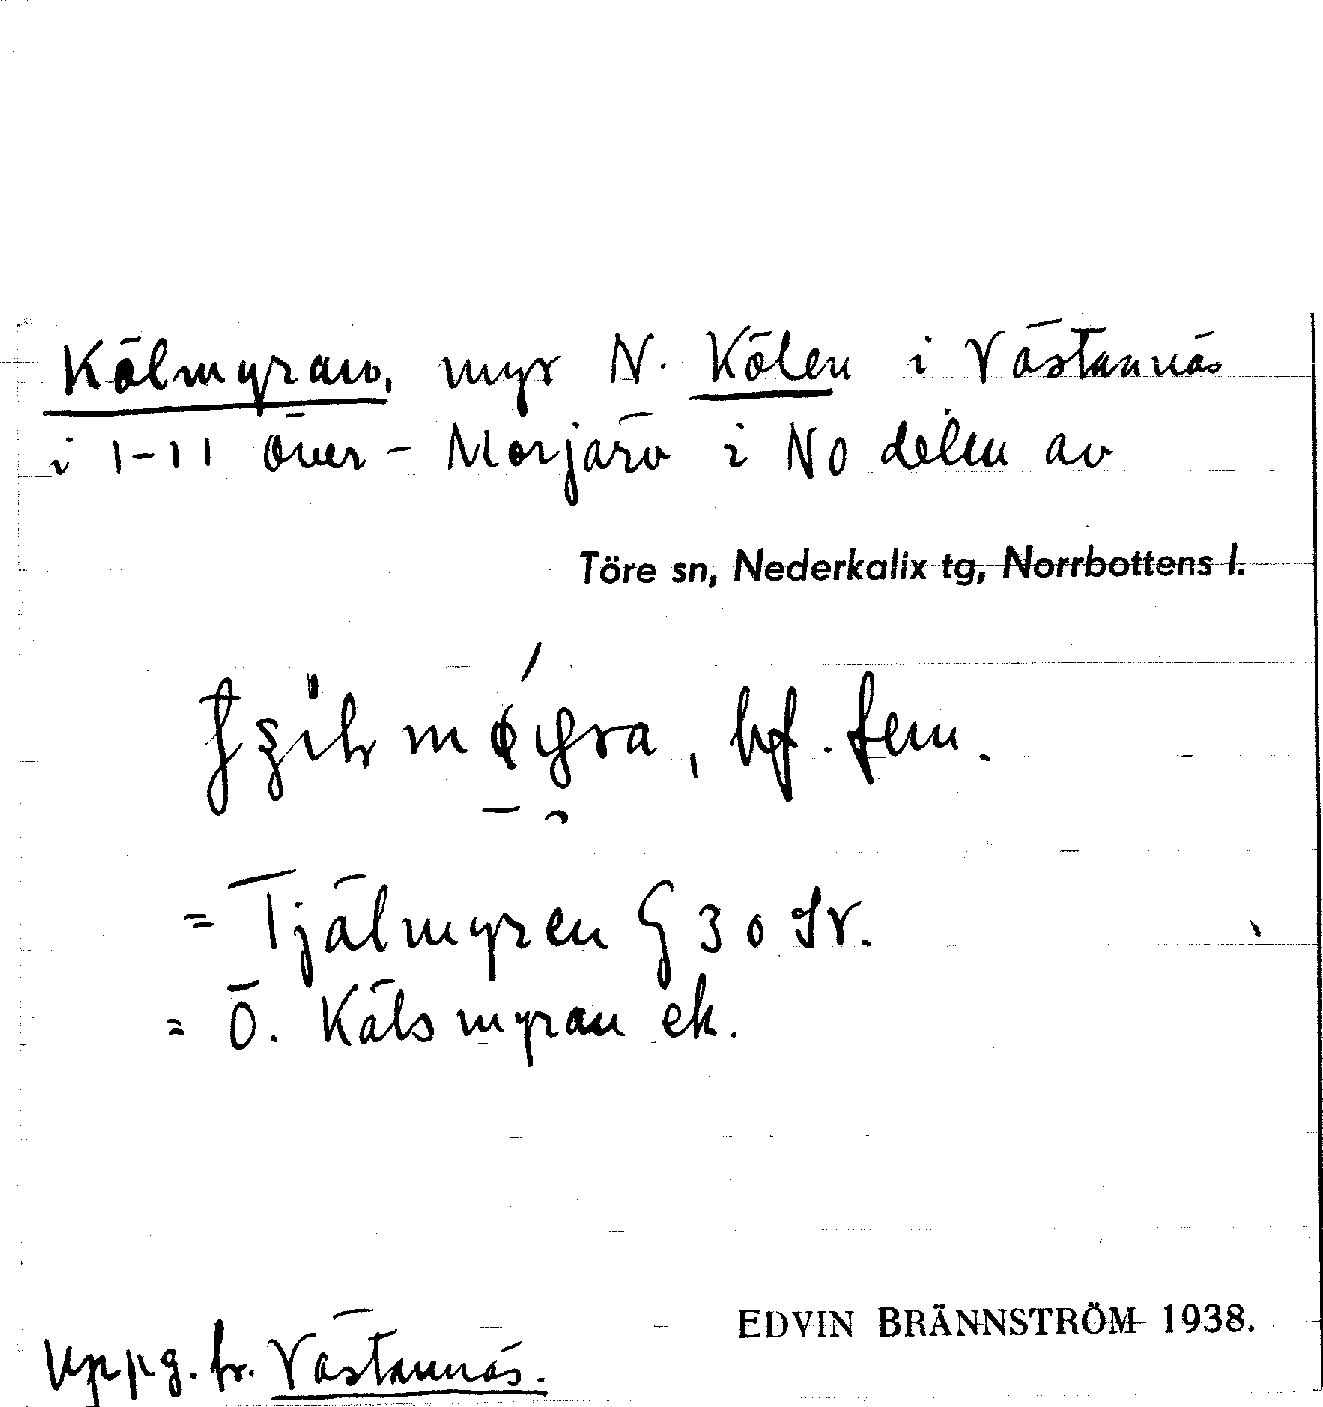 Kölmyran, myr N. Kölen i Västannäs
i 1-11 Över-Morjärv i NO delen av
Töre sn, Nederkalix tg, Norrbottens l.
bf. fem.
= Tjälmyren § 30 Sv.
= Ö. Kälsmyran ek.
EDVIN BRÄNNSTRÖM 1938.
Uppg. fr. Västannäs.